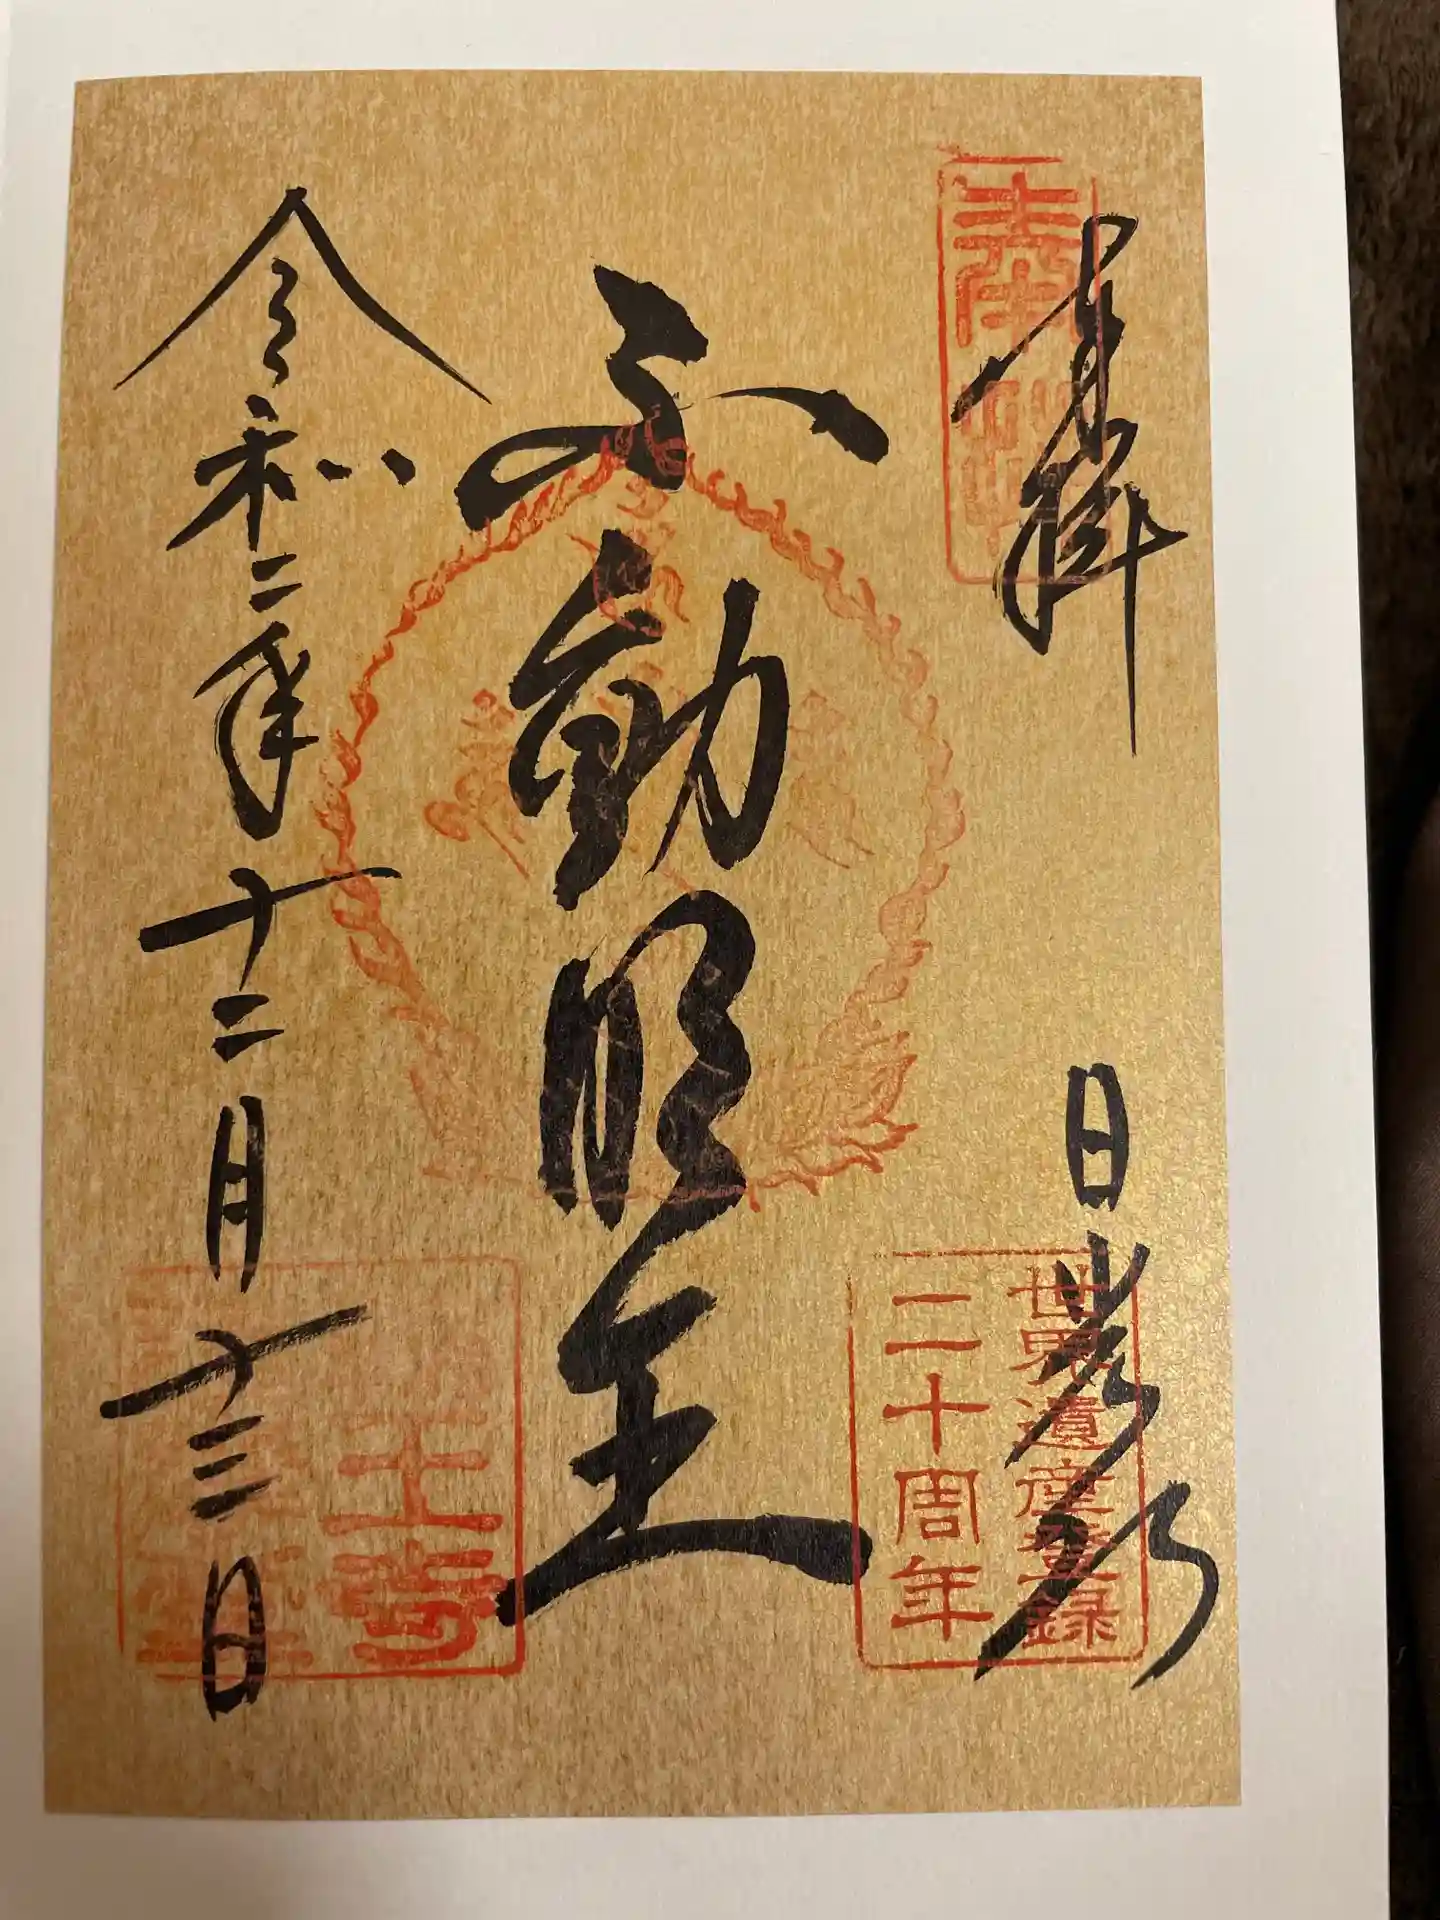 奉拝
日光山
世界遺産登録
二十周年
不動明王
王寺
令和二年十二月十三日